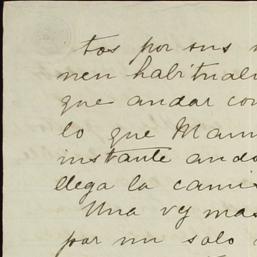 tos por sus
nen habitual
que andar con
lo que Mam
instante ando
llega la cami
Una vez mas
por un solo